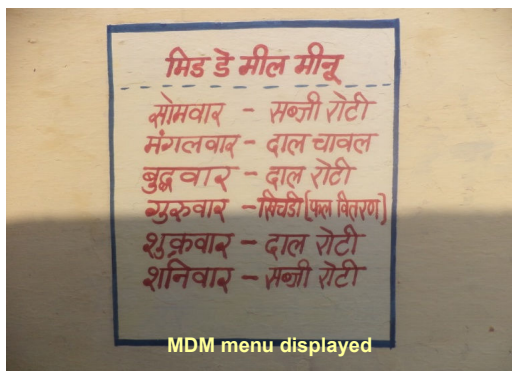 मिड डे मील मीनू
सोमवार - सब्जी रोटी
मंगलवार - दाल चावल
बुद्धवार - दाल रोटी
गुरुवार - खिचडी (फल वितरण)
शुक्रवार - दाल रोटी
शनिवार - सब्जी रोटी
MDM menu displayed